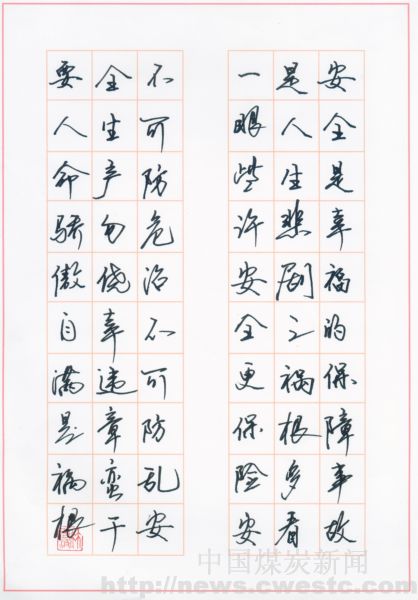 安全是幸福的保障事故
是人生悲剧之祸根多看
一眼些许安全更保险安
不可防危治不可防乱安
全生产勿侥幸违章蛮干
要人命骄傲自满是祸根
中国煤炭新闻
http://news.cwestc.com